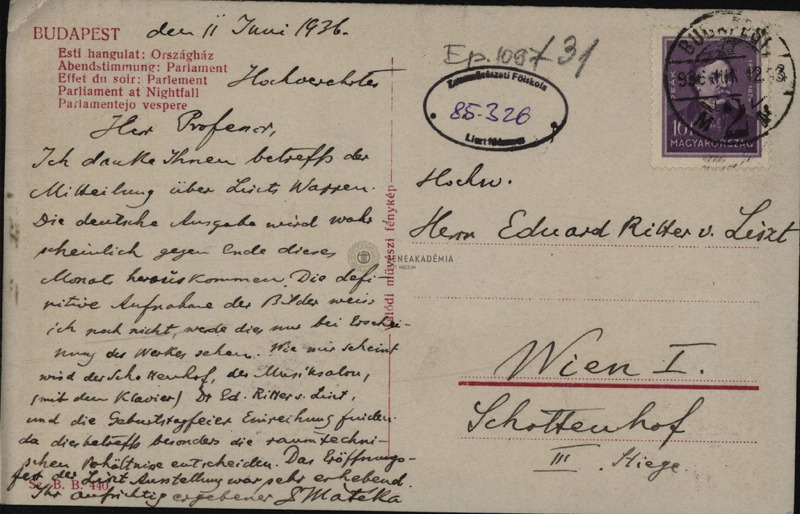 BUDAPEST
Esti hangulat: Országház
Abendstimmung: Parlament
Effet du soir: Parlement
Parliament at Nightfall
Parlamentejo vespere
den 11 Juni 1936.
Hochverehrter
Herr Professor,
Ich danke Ihnen betreffs der
Mitteilung über Liszts Wappen.
Die deutsche Ausgabe wird wahr
scheinlich gegen Ende dieses
Monats herauskommen. Die defi-
nitive Aufnahme der Bilder weiss
ich noch nicht, werde dies nur bei Erschei-
nung des Werkes sehen. Wie mir scheint
wird der Schottenhof, der Musiksalon,
(mit dem Klavier) Dr Ed. Ritter v. Liszt,
und die Geburtstagfeier Einreihung finden
da diesbetreffs besonders die raumtechni-
schen entscheiden. Das Eröffnungs-
fest der Liszt Ausstellung war sehr erhebend.
Ihr aufrichtig ergebener
Sc. B. B. 440
Valódi művészi fénykép
Ep. 1097/31
Zeneművészeti Főiskola
85-326
Liszt
BUDAPEST
936 JUN 12
2
MAGYARORSZÁG
ZENEAKADÉMIA
Hochw.
Herrn Eduard Ritter v. Liszt
Wien I.
Schottenhof
III. Stiege.